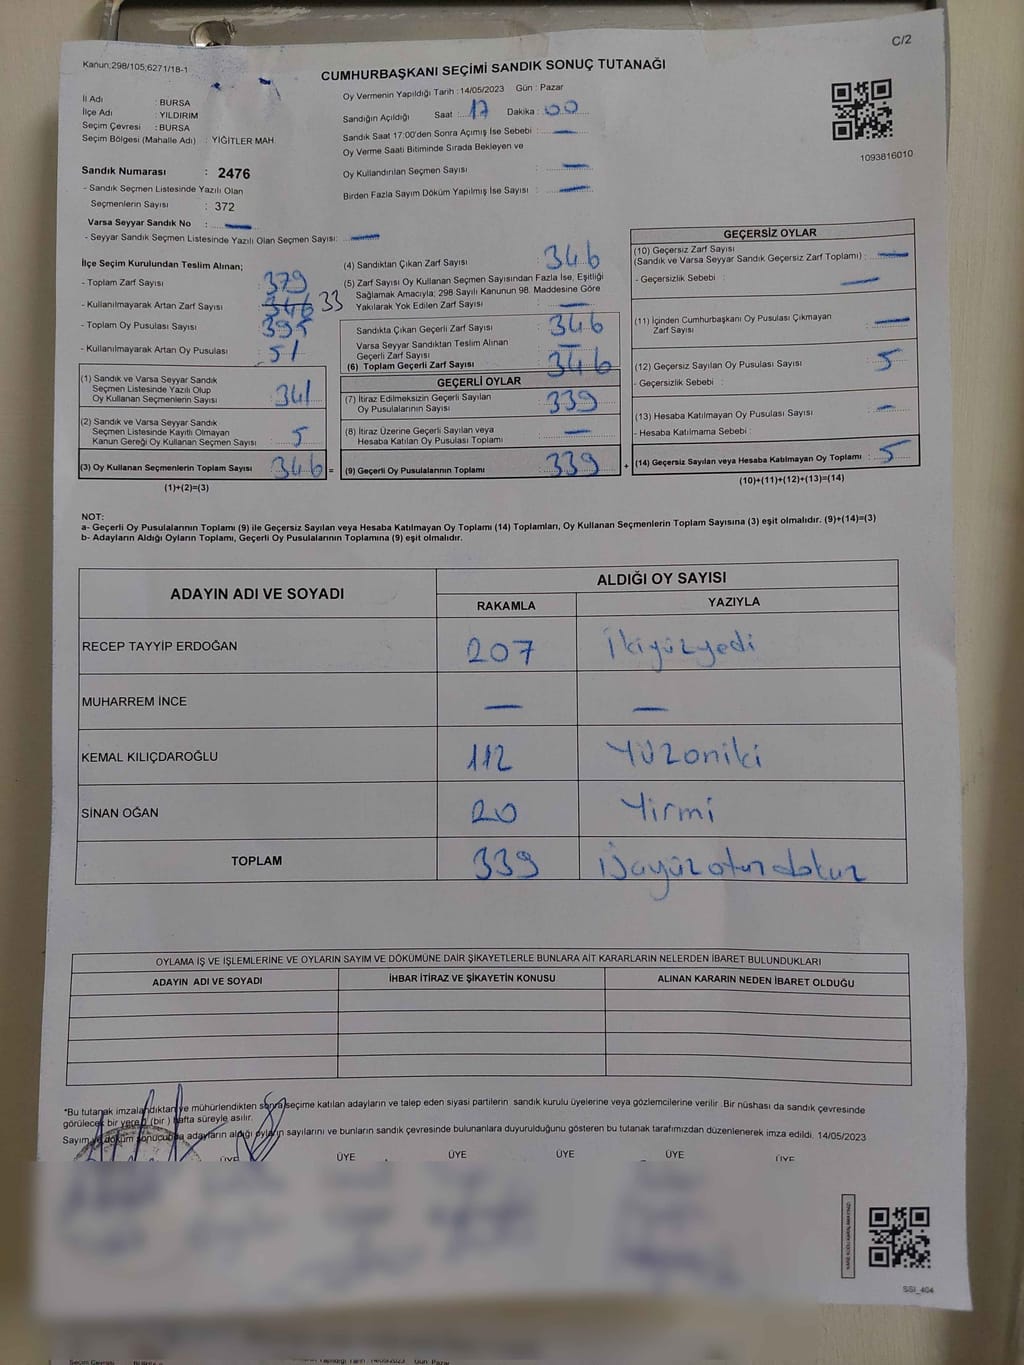 C/2
Kanun:298/105;6271/18-1
CUMHURBAŞKANI SEÇİMİ SANDIK SONUÇ TUTANAĞI
İl Adı : BURSA
İlçe Adı : YILDIRIM
Seçim Çevresi : BURSA
Seçim Bölgesi (Mahalle Adı) : YİĞİTLER MAH.
Sandık Numarası : 2476
- Sandık Seçmen Listesinde Yazılı Olan
Seçmenlerin Sayısı : 372
Varsa Seyyar Sandık No : —
- Seyyar Sandık Seçmen Listesinde Yazılı Olan Seçmen Sayısı: —
Oy Vermenin Yapıldığı Tarih : 14/05/2023 Gün : Pazar
Sandığın Açıldığı Saat : 17 Dakika : 00
Sandık Saat 17:00'den Sonra Açımış İse Sebebi : —
Oy Verme Saati Bitiminde Sırada Bekleyen ve
Oy Kullandırılan Seçmen Sayısı : —
Birden Fazla Sayım Döküm Yapılmış İse Sayısı : —
1093816010
İlçe Seçim Kurulundan Teslim Alınan;
- Toplam Zarf Sayısı : 379
- Kullanılmayarak Artan Zarf Sayısı : 346 33
- Toplam Oy Pusulası Sayısı : 395
- Kullanılmayarak Artan Oy Pusulası : 51
(1) Sandık ve Varsa Seyyar Sandık
Seçmen Listesinde Yazılı Olup
Oy Kullanan Seçmenlerin Sayısı : 341
(2) Sandık ve Varsa Seyyar Sandık
Seçmen Listesinde Kayıtlı Olmayan
Kanun Gereği Oy Kullanan Seçmen Sayısı : 5
(3) Oy Kullanan Seçmenlerin Toplam Sayısı : 346 =
(1)+(2)=(3)
(4) Sandıktan Çıkan Zarf Sayısı : 346
(5) Zarf Sayısı Oy Kullanan Seçmen Sayısından Fazla İse, Eşitliği
Sağlamak Amacıyla; 298 Sayılı Kanunun 98. Maddesine Göre
Yakılarak Yok Edilen Zarf Sayısı : —
Sandıkta Çıkan Geçerli Zarf Sayısı : 346
Varsa Seyyar Sandıktan Teslim Alınan
Geçerli Zarf Sayısı : —
(6) Toplam Geçerli Zarf Sayısı : 346
GEÇERLİ OYLAR
(7) İtiraz Edilmeksizin Geçerli Sayılan
Oy Pusulalarının Sayısı : 339
(8) İtiraz Üzerine Geçerli Sayılan veya
Hesaba Katılan Oy Pusulası Toplamı : —
(9) Geçerli Oy Pusulalarının Toplamı : 339 +
GEÇERSİZ OYLAR
(10) Geçersiz Zarf Sayısı
(Sandık ve Varsa Seyyar Sandık Geçersiz Zarf Toplamı) : —
- Geçersizlik Sebebi : —
(11) İçinden Cumhurbaşkanı Oy Pusulası Çıkmayan
Zarf Sayısı : —
(12) Geçersiz Sayılan Oy Pusulası Sayısı : 5
- Geçersizlik Sebebi :
(13) Hesaba Katılmayan Oy Pusulası Sayısı : —
- Hesaba Katılmama Sebebi :
(14) Geçersiz Sayılan veya Hesaba Katılmayan Oy Toplamı : 5
(10)+(11)+(12)+(13)=(14)
NOT:
a- Geçerli Oy Pusulalarının Toplamı (9) ile Geçersiz Sayılan veya Hesaba Katılmayan Oy Toplamı (14) Toplamları, Oy Kullanan Seçmenlerin Toplam Sayısına (3) eşit olmalıdır. (9)+(14)=(3)
b- Adayların Aldığı Oyların Toplamı, Geçerli Oy Pusulalarının Toplamına (9) eşit olmalıdır.
ADAYIN ADI VE SOYADI
ALDIĞI OY SAYISI
RAKAMLA YAZIYLA
RECEP TAYYİP ERDOĞAN 207 İkiyüzyedi
MUHARREM İNCE — —
KEMAL KILIÇDAROĞLU 112 Yüzoniki
SİNAN OĞAN 20 Yirmi
TOPLAM 339
OYLAMA İŞ VE İŞLEMLERİNE VE OYLARIN SAYIM VE DÖKÜMÜNE DAİR ŞİKAYETLERLE BUNLARA AİT KARARLARIN NELERDEN İBARET BULUNDUKLARI
ADAYIN ADI VE SOYADI İHBAR İTİRAZ VE ŞİKAYETİN KONUSU ALINAN KARARIN NEDEN İBARET OLDUĞU
*Bu tutanak imzalandıktan ve mühürlendikten sonra seçime katılan adayların ve talep eden siyasi partilerin sandık kurulu üyelerine veya gözlemcilerine verilir .Bir nüshası da sandık çevresinde
görülecek bir yere (bir ) hafta süreyle asılır.
Sayım ve döküm sonucunda adayların aldığı oyların sayılarını ve bunların sandık çevresinde bulunanlara duyurulduğunu gösteren bu tutanak tarafımızdan düzenlenerek imza edildi. 14/05/2023
ÜYE ÜYE ÜYE ÜYE ÜYE ÜYE
SSI_404